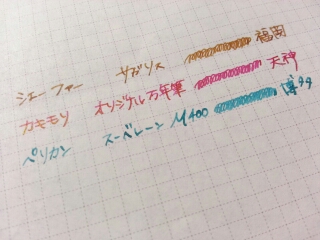 シェーファー サガリス 福岡
カキモリ オリジナル万年筆 天神
ペリカン スーベレーン M400 博多